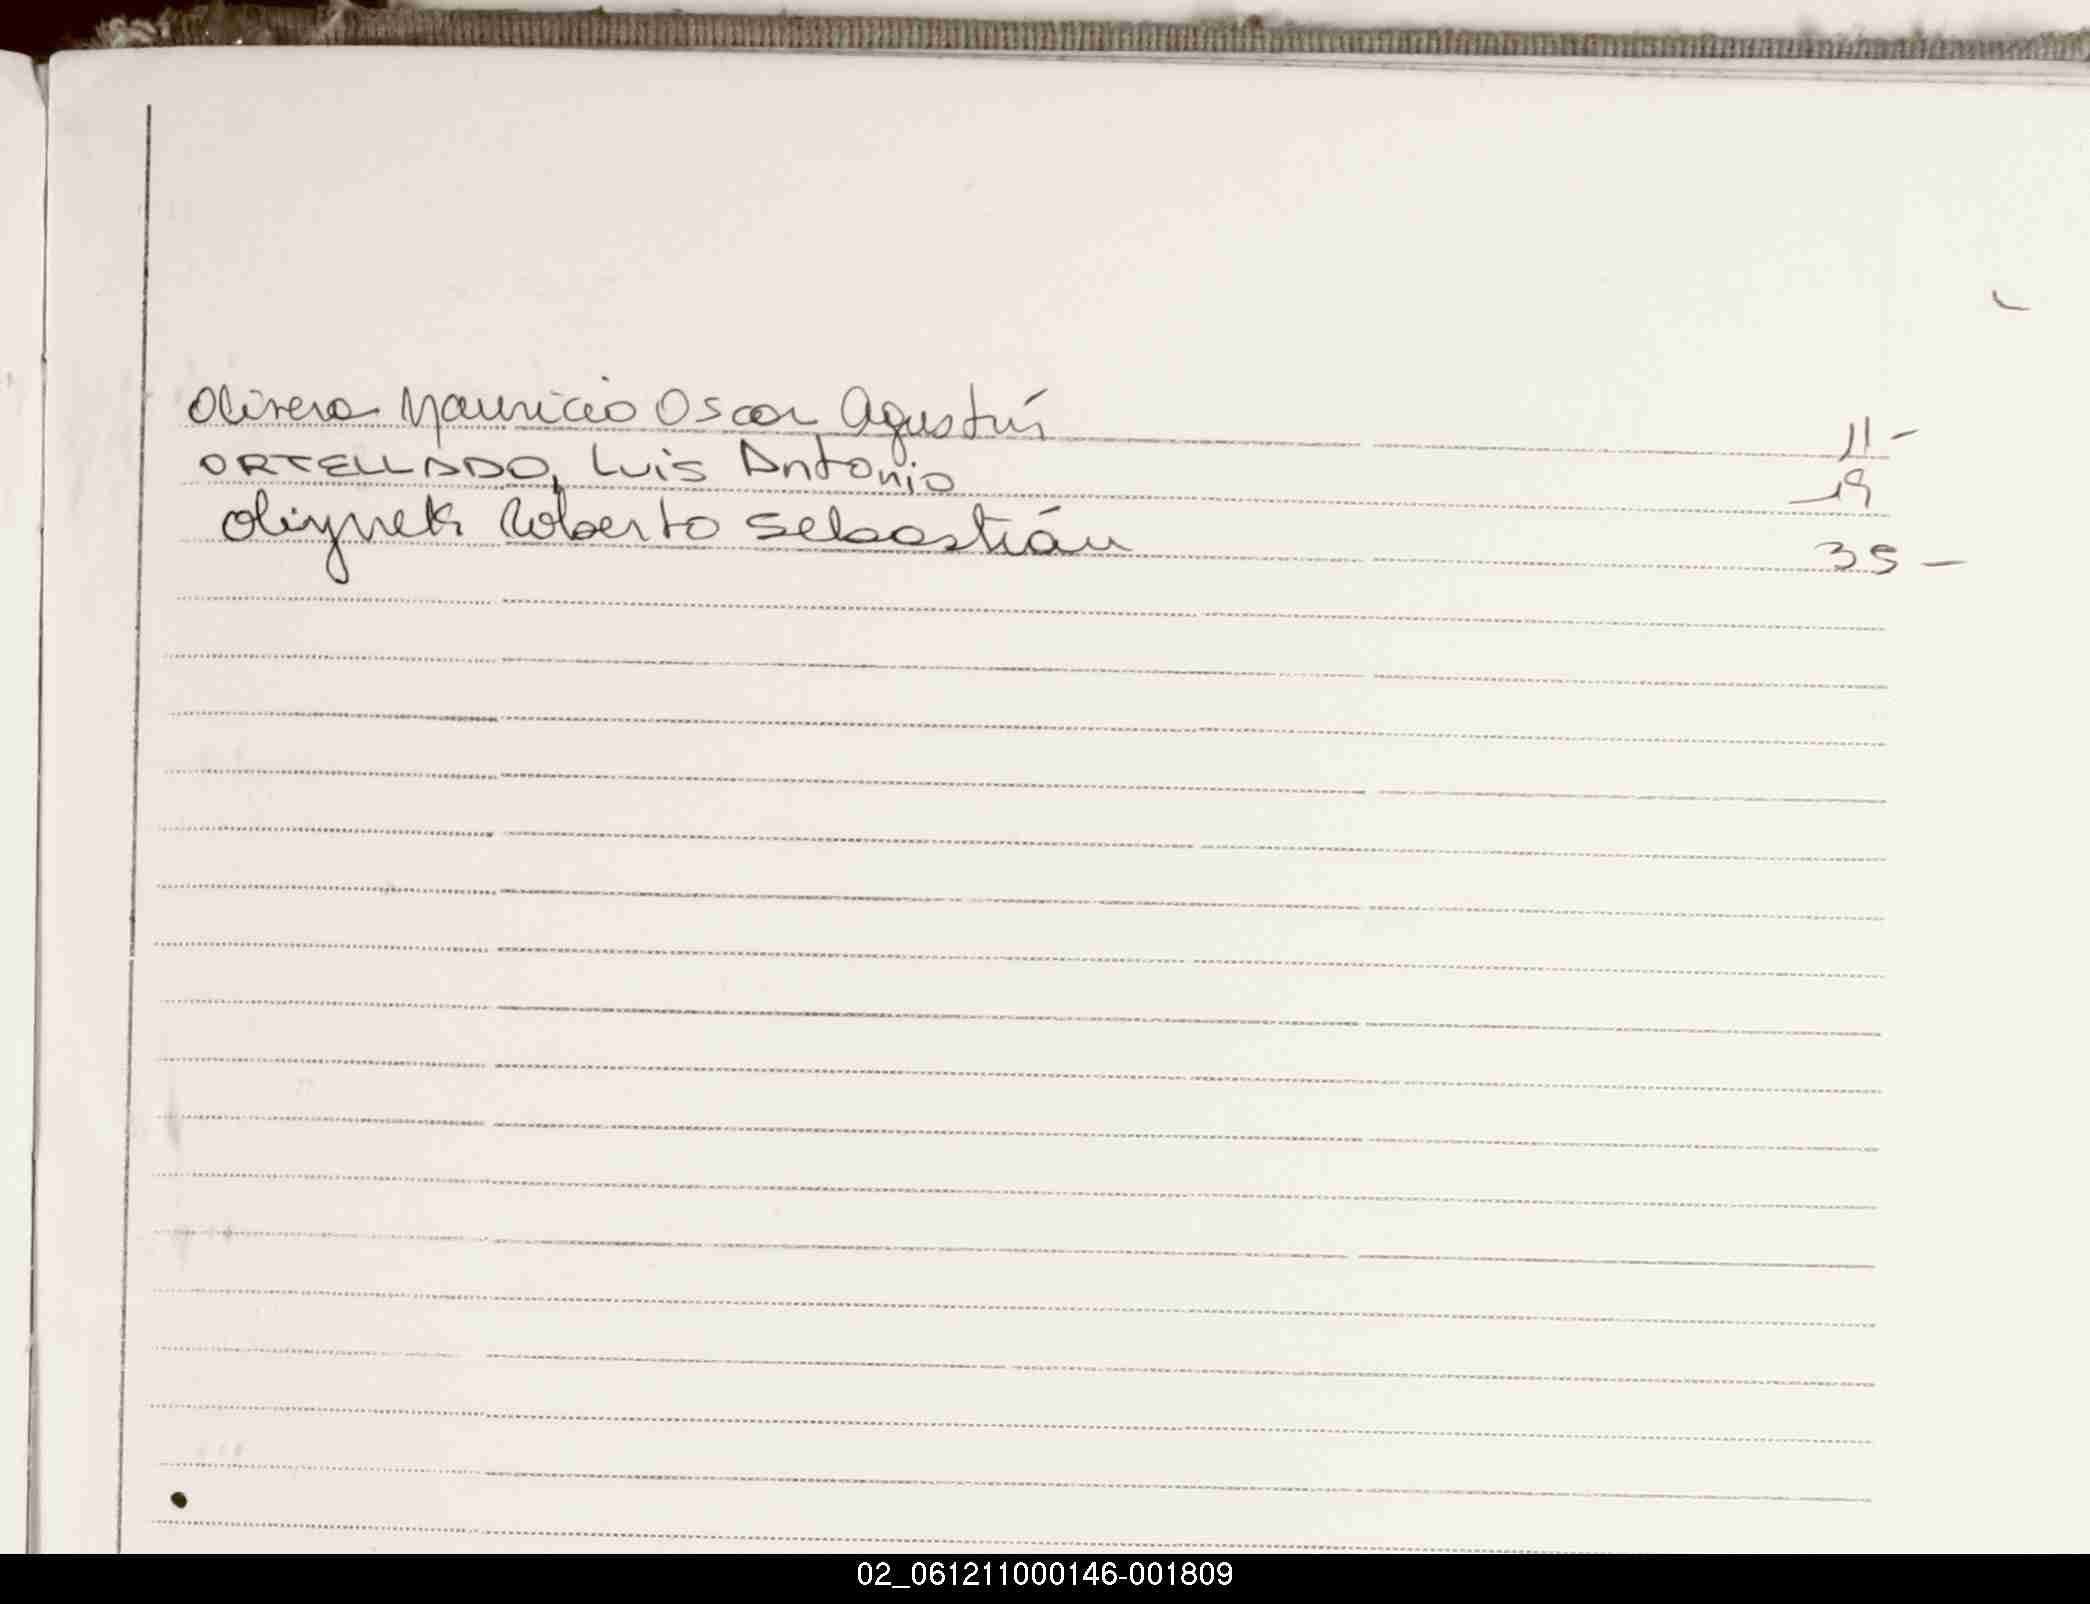 Olivera Mauricio Oscar Agustín 11 -
ORTELLADO, Luis Antonio 19
Oliynek Roberto Sebastián 35 -
02_061211000146-001809